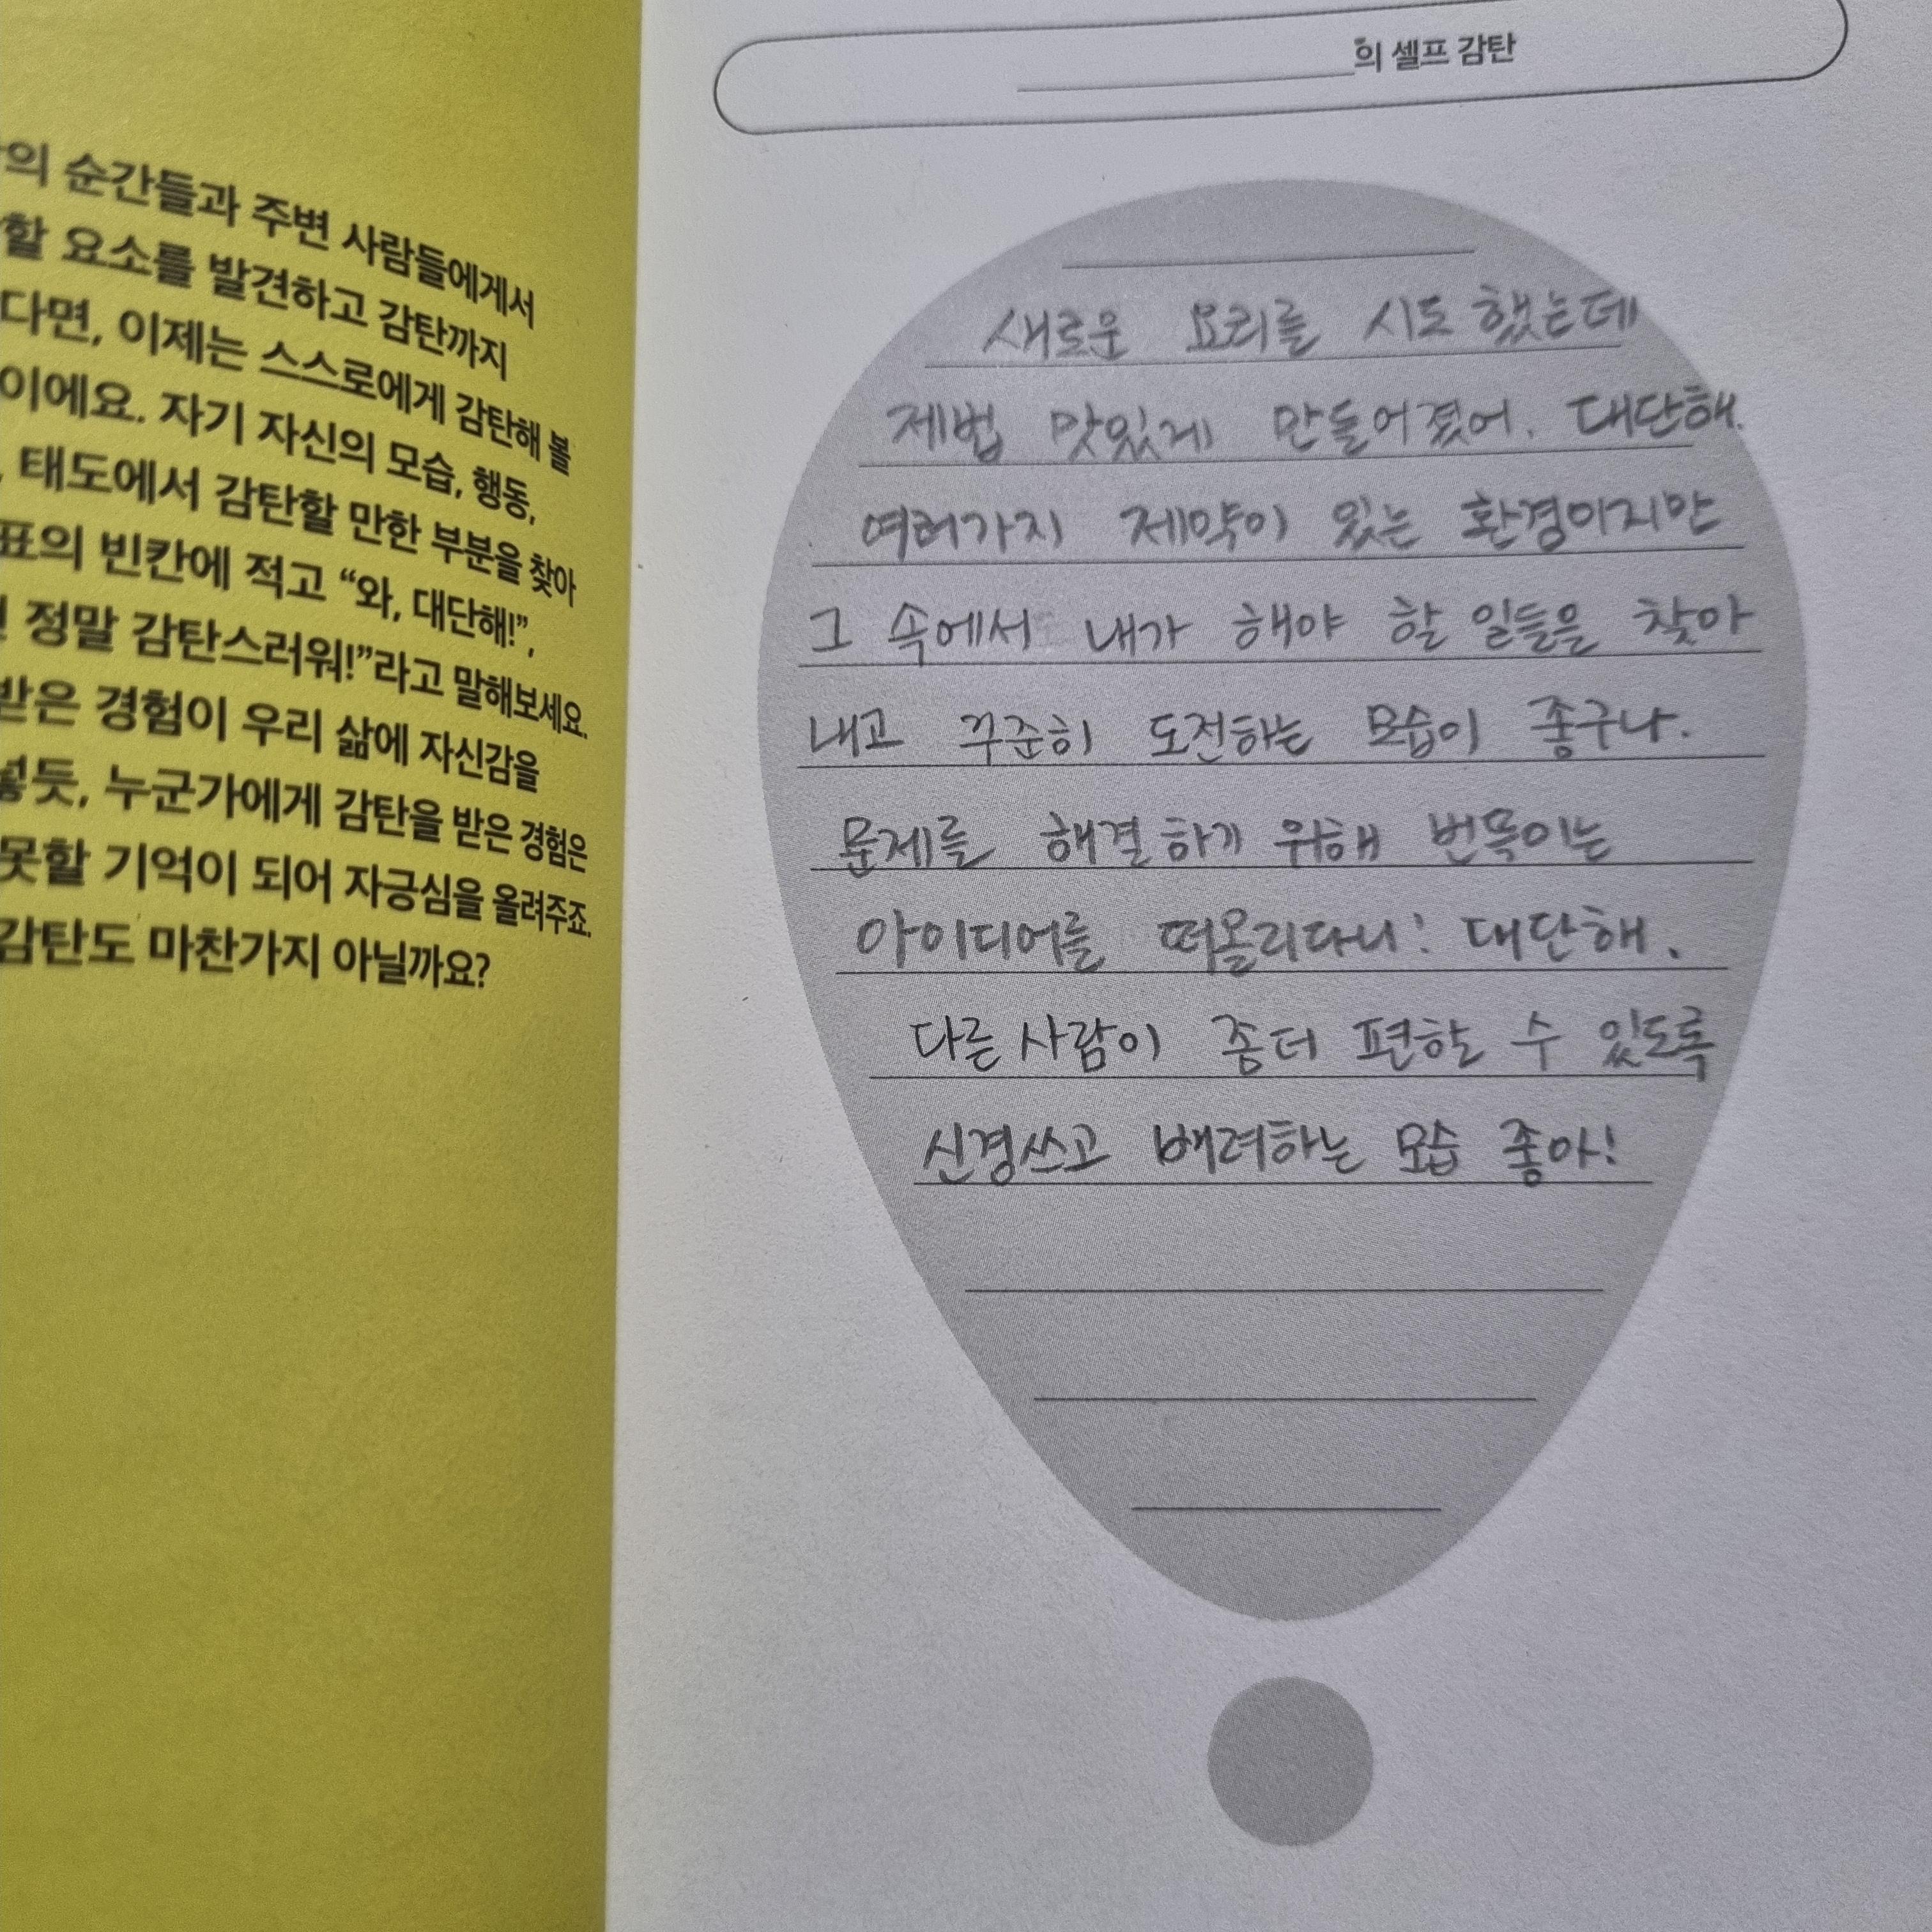 의 순간들과 주변 사람들에게서
할 요소를 발견하고 감탄까지
다면, 이제는 스스로에게 감탄해 볼
이에요. 자기 자신의 모습, 행동,
, 태도에서 감탄할 만한 부분을 찾아
표의 빈칸에 적고 “와, 대단해!”,
정말 감탄스러워!”라고 말해보세요.
받은 경험이 우리 삶에 자신감을
넣듯, 누군가에게 감탄을 받은 경험은
못할 기억이 되어 자긍심을 올려주죠.
감탄도 마찬가지 아닐까요?
의 셀프 감탄
새로운 요리를 시도 했는데
제법 맛있게 만들어졌어. 대단해.
여러가지 제약이 있는 환경이지만
그 속에서 내가 해야 할 일들을 찾아
내고 꾸준히 도전하는 모습이 좋구나.
문제를 해결하기 위해 번뜩이는
아이디어를 떠올리다니! 대단해.
다른 사람이 좀더 편할 수 있도록
신경쓰고 배려하는 모습 좋아!